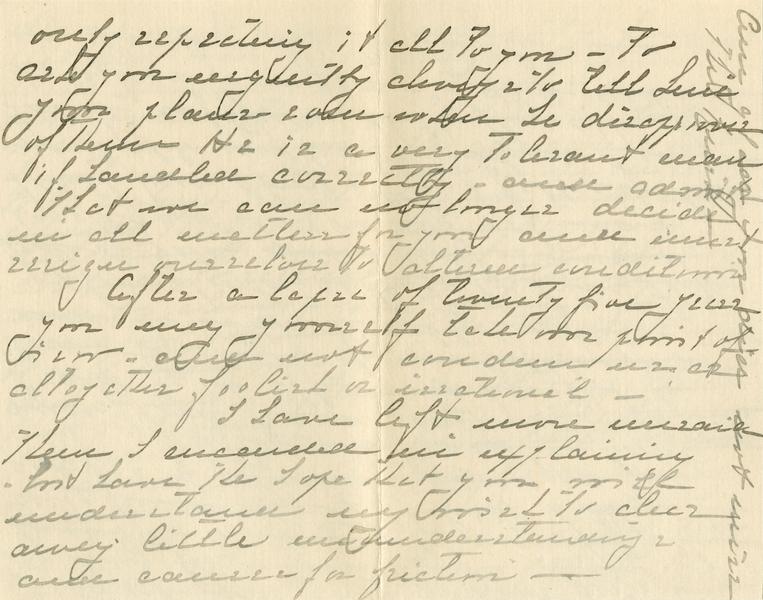 only repeating it all to you - To
ask you urgently always to tell him
your plans even when he disapproves
of them He is a very tolerant man
if handled correctly - and admits
that we can no longer decide
in all matters for you and must
resign ourselves to altered conditions
After a lapse of twenty five years
you may yourself take our point of
view - and not condemn us as
altogether foolish or irrational -
I have left more unsaid
than I succeeded in explaining
- but have the hope that you will
understand my wish to clear
away little misunderstandings
and causes for friction -